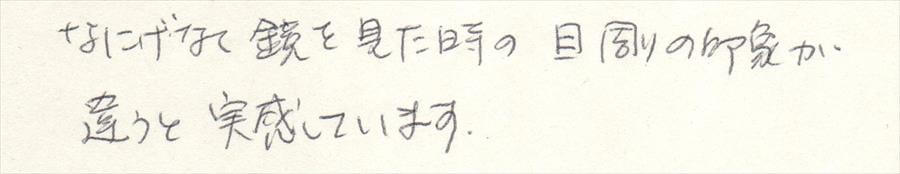 なにげなく鏡を見た時の 目周りの印象が
違うと 実感しています.